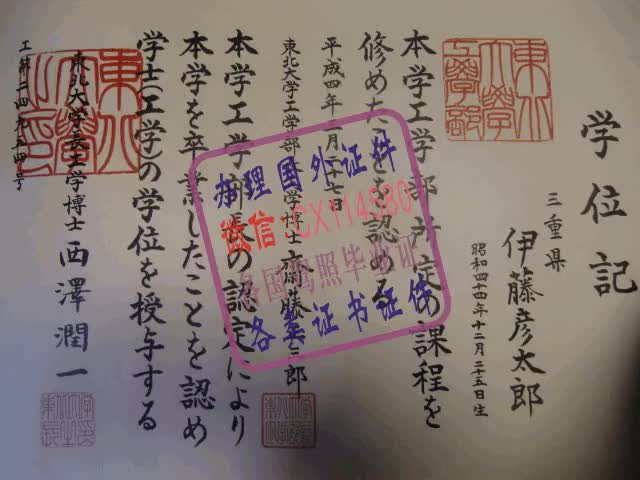 学位記
三重県
伊藤彦太郎
昭和四十四年十二月二五日生
本学工学部所定の課程を
修めたことを認める
平成四年 月二十七日
東北大学工学部 学博士齋藤 三郎
本学工学部長の認定により
本学を卒業したことを認め
学士(工学)の学位を授与する
東北大学長工学博士 西澤潤一
办理国外证件
微信:CX114580
各国驾照毕业证
各类证书证件